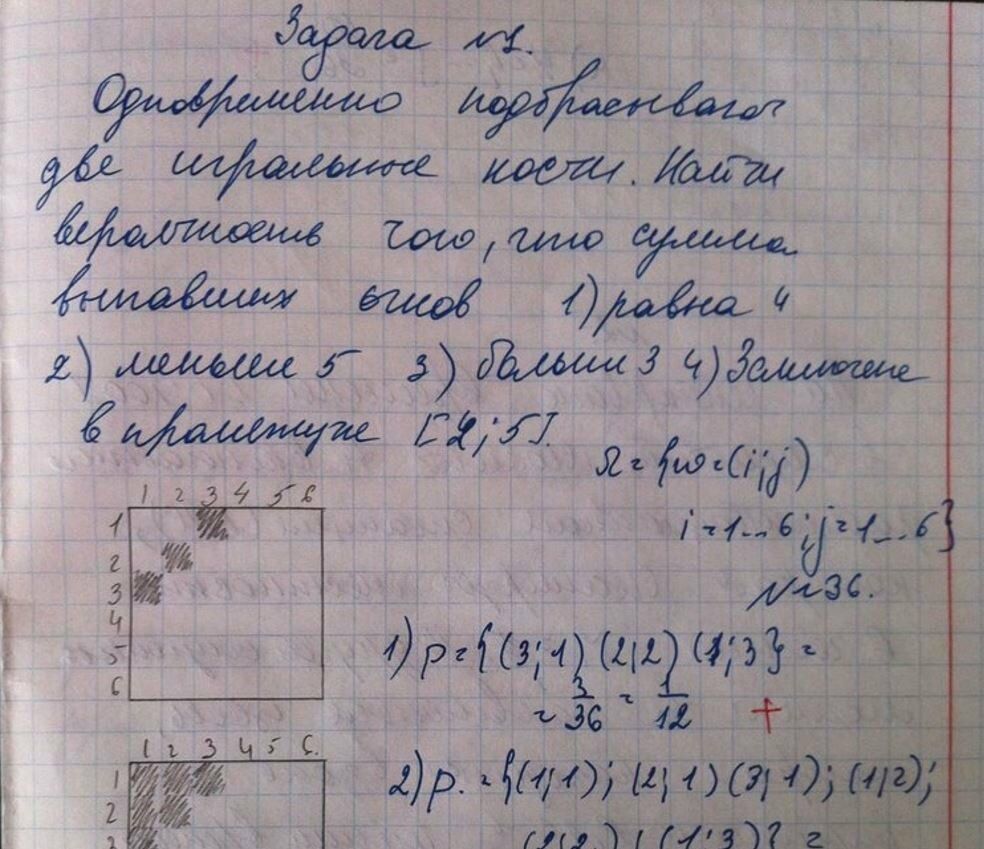 Задача №1.
Одновременно подбрасывают
две игральные кости. Найти
вероятность того, что сумма
выпавших очков 1) равна 4
2) меньше 5 3) больше 3 4) Заключена
в промежутке [2;5].
Ω = {ω = (i;j)
i = 1...6; j = 1...6}
N = 36.
1 2 3 4 5 6
1
2
3
4
5
6
1) p = {(3;1) (2;2) (1;3} =
= 3/36 = 1/12 +
1 2 3 4 5 6.
1
2
3
2) p. = {(1;1); (2;1) (3;1); (1;2);
(2;2) ; (1;3)} =